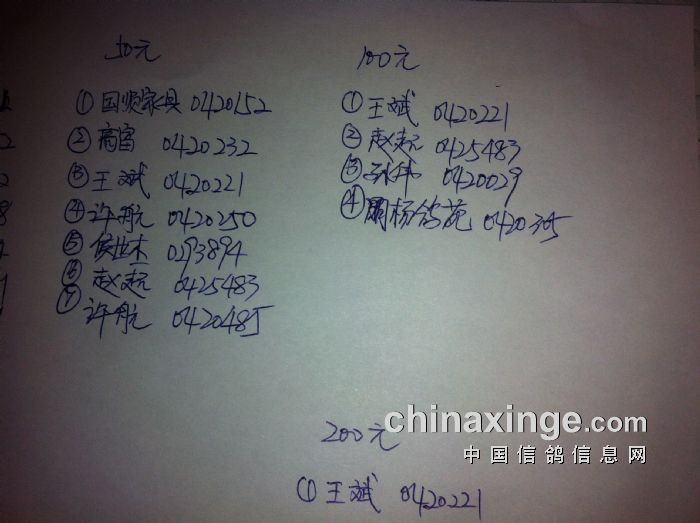 50元
①国顺家具 0420152
②高富 0420232
③王斌 0420221
④许航 0420250
⑤侯世杰 0293894
⑥赵远 0425483
⑦许航 0420485
100元
①王斌 0420221
②赵远 0425483
③孙伟 0420029
④周杨鸽苑 0420305
chinaxinge.com
中国信鸽信息网
200元
①王斌 0420221